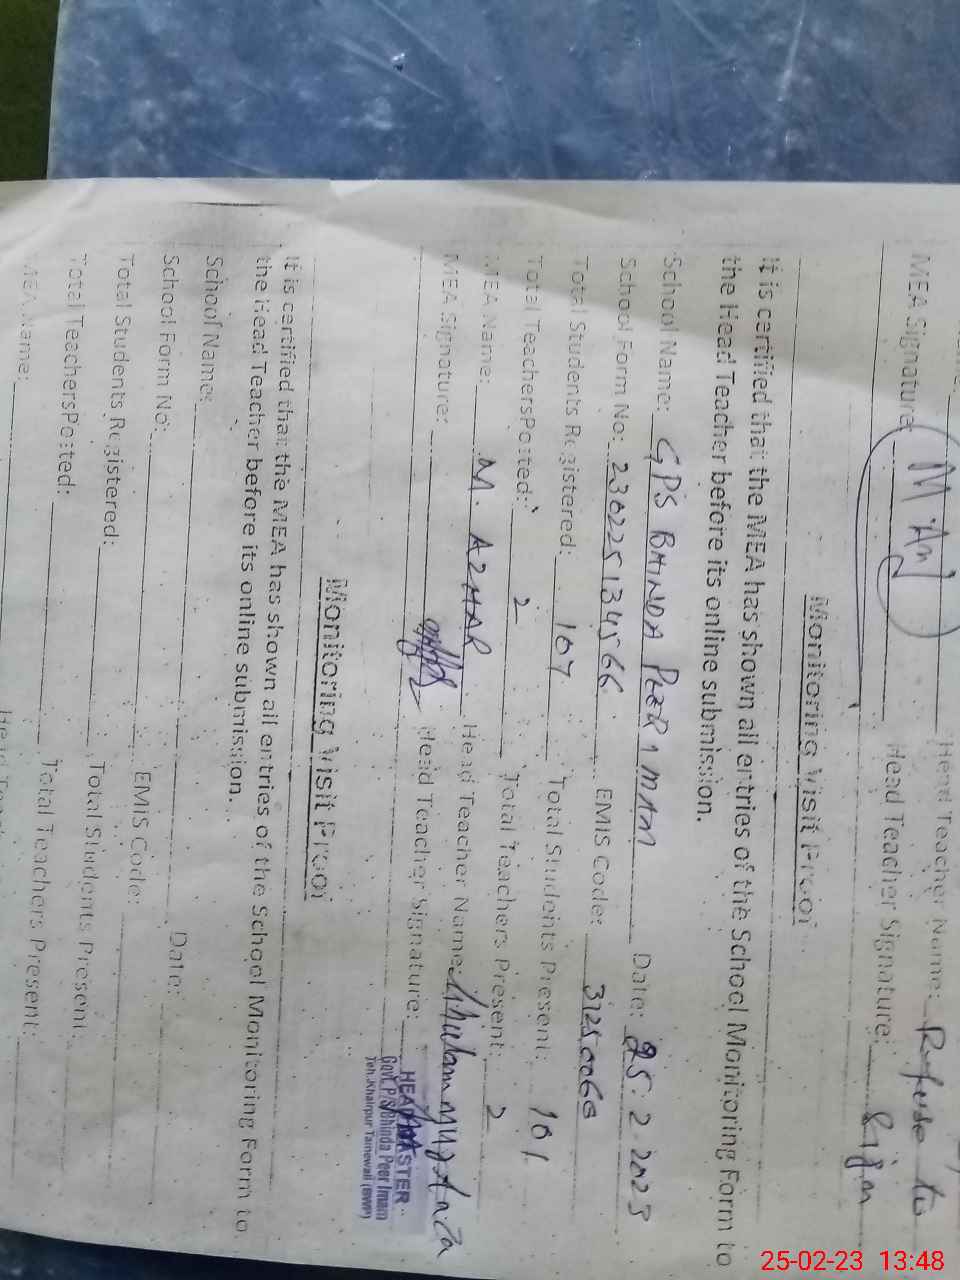 Head Teacher Name: Refuse to
MEA Signature: Head Teacher Signature: Sign
Monitoring Visit Proof
It is certified that the MEA has shown all entries of the School Monitoring Form to
the Head Teacher before its online submission.
School Name: GPS BHINDA PEER IMAM Date: 25.2.2023
School Form No: 230225134566 EMIS Code:
Total Students Registered: 107 Total Students Present: 101
Total Teachers Posted: 2 Total Teachers Present: 2
MEA Name: M. AZHAR Head Teacher Name:
MEA Signature: Head Teacher Signature:
HEADMASTER
Govt. P/S Bhinda Peer Imam
Teh. Khairpur Tamewali (BWP)
Monitoring Visit Proof
It is certified that the MEA has shown all entries of the School Monitoring Form to
the Head Teacher before its online submission.
School Name: Date:
School Form No: EMIS Code:
Total Students Registered: Total Students Present:
Total Teachers Posted: Total Teachers Present:
MEA Name:
25-02-23 13:48